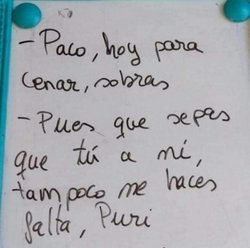 - Paco, hoy para
cenar, sobras
- Pues que sepas
que tú a mí,
tampoco me haces
falta, Puri